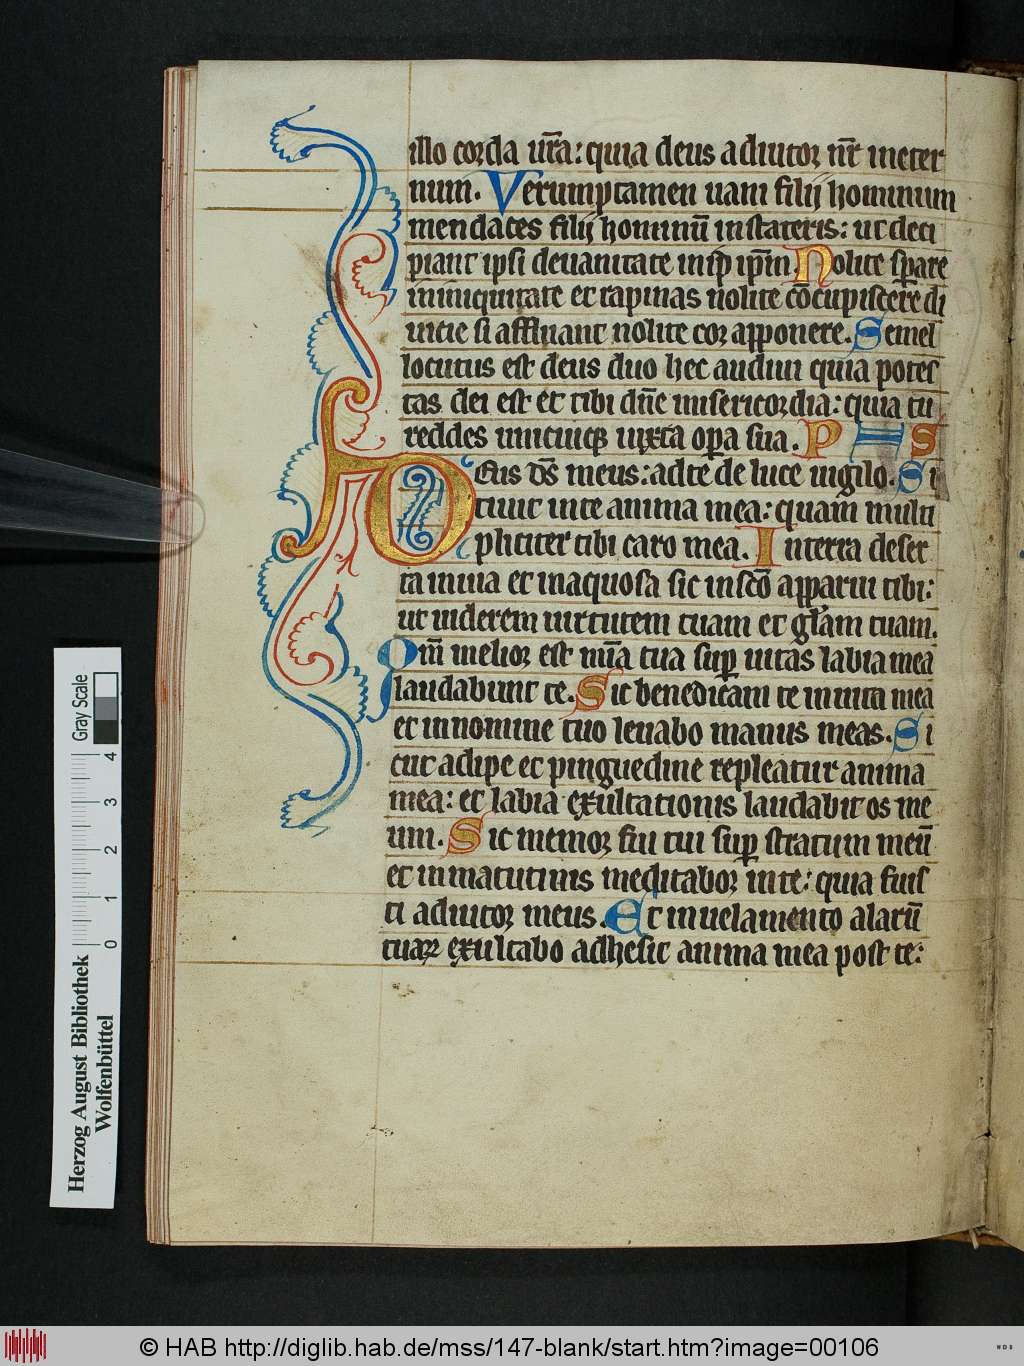 illo corda ur̃a: quia deus adiutor nr̃ ineter
num. Verumptamen uani filij hominum
mendaces filij hominū instateris: ut deci
piant ipsi deuanitate in ip̄m Nolite sꝑare
ininiquitate et rapinas nolite cōcupiscere di
uicie si affluant nolite cor apponere. Semel
locutus est deus duo hec audiui quia potes
tas dei est et tibi dn̄e misericordia: quia tu
reddes unicuiqꝫ iuxta oꝑa sua. P H S
DEus ds̄ meus: adte de luce uigilo. Si
tiuit inte anima mea: quam multi
pliciter tibi caro mea. Interra deser
ta inuia et inaquosa sic insc̄o apparui tibi:
ut uiderem uirtutem tuam et gl̄am tuam.
Qm̄ melior est mīa tua suꝑ uitas labia mea
laudabunt te. Sic benedicam te inuita mea
et innomine tuo leuabo manus meas. Si
cut adipe et pinguedine repleatur anima
mea: et labia exultationis laudabit os me
um. Sic memor fui tui suꝑ stratum meū
et inmatutinis meditabor inte: quia fuis
ti adiutor meus. Et inuelamento alarū
tuaꝝ exultabo adhesit anima mea post te:
Herzog August Bibliothek
Wolfenbüttel
Gray Scale
0 1 2 3 4
© HAB http://diglib.hab.de/mss/147-blank/start.htm?image=00106